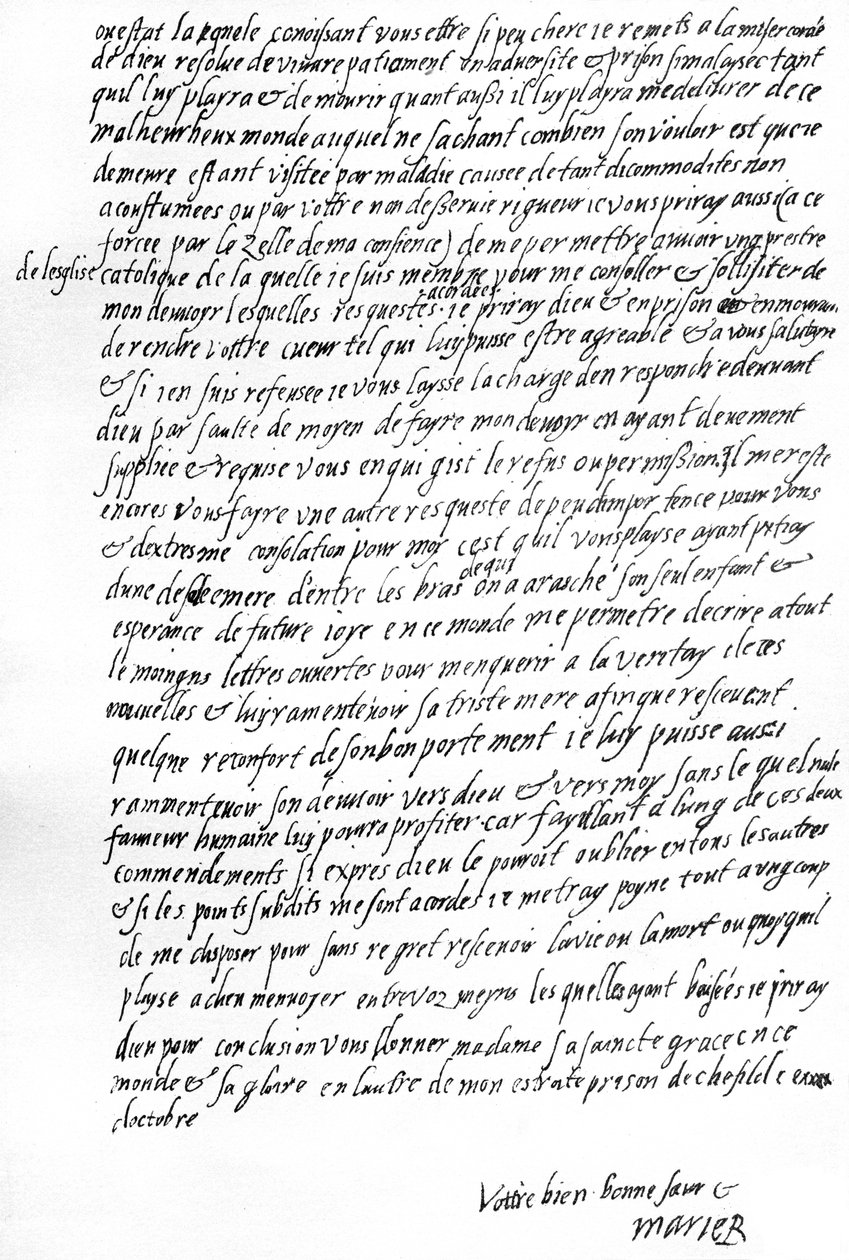 ou estat laquele conoissant vous estre si peu chere ie remets a la misericorde
de dieu resolue de vivre patiament en adversite & prison si malaysee tant
quil luy playra & de mourir quant aussi il luy playra me delivrer de ce
malheurheux monde auquel ne sachant combien son vouloir est que ie
demeure estant visitee par maladie causee de tant dicommodites non
acoustumees ou par vottre non desservie rigueur ie vous priray aussi (a ce
forcee par le zelle de ma consience) de me permettre avvoir ung prestre
de lesglise catolique de la quelle ie suis membre pour me consoller & sollisiter de
mon devvoyr lesquelles resquestes acordees ie priray dieu & en prison & en mourant
de rendre vottre cueur tel qui luy puisse estre agreable & a vous salutayre
& si ien suis refeusee ie vous laysse la charge den respondre devvant
dieu par faulte de moyen de fayre mon devvoyr en ayant deuement
suppliee & requise vous en qui gist le refus ou permission. Il me reste
encores vous fayre une autre resqueste de peu dimportence pour vous
& dextresme consolation pour moy cest quil vous playse ayant pitay
dune desolee mere dentre les bras de qui on a arasché son seul enfant &
esperance de future ioye en ce monde me permetre decrire a tout
le moingns lettres ouvertes pour menquerir a la veritay de ces
nouvelles & luy ramentevoir sa triste mere afin que resceuvent
quelque reconfort de son bon portement ie luy puisse aussi
rammentevoir son devvoir vers dieu & vers moy sans le quel nule
faveur humaine luy pourra profiter car fayllant a lung de ces deux
commendements si expres dieu le pourroit oublier en tous les autres
& si les points subdits me sont acordes ie metray poyne tout a ung coup
de me disposer pour sans regret rescevoir la vie ou la mort ou quoy quil
playse a dieu menvoyer entre voz meyns les quelles ayant baisées ie priray
dieu pour conclusion vous donner madame sa saincte grace en ce
monde & sa gloire en lautre de mon estroite prison de chefild le
doctobre
Vottre bien bonne sœur &
Marie R